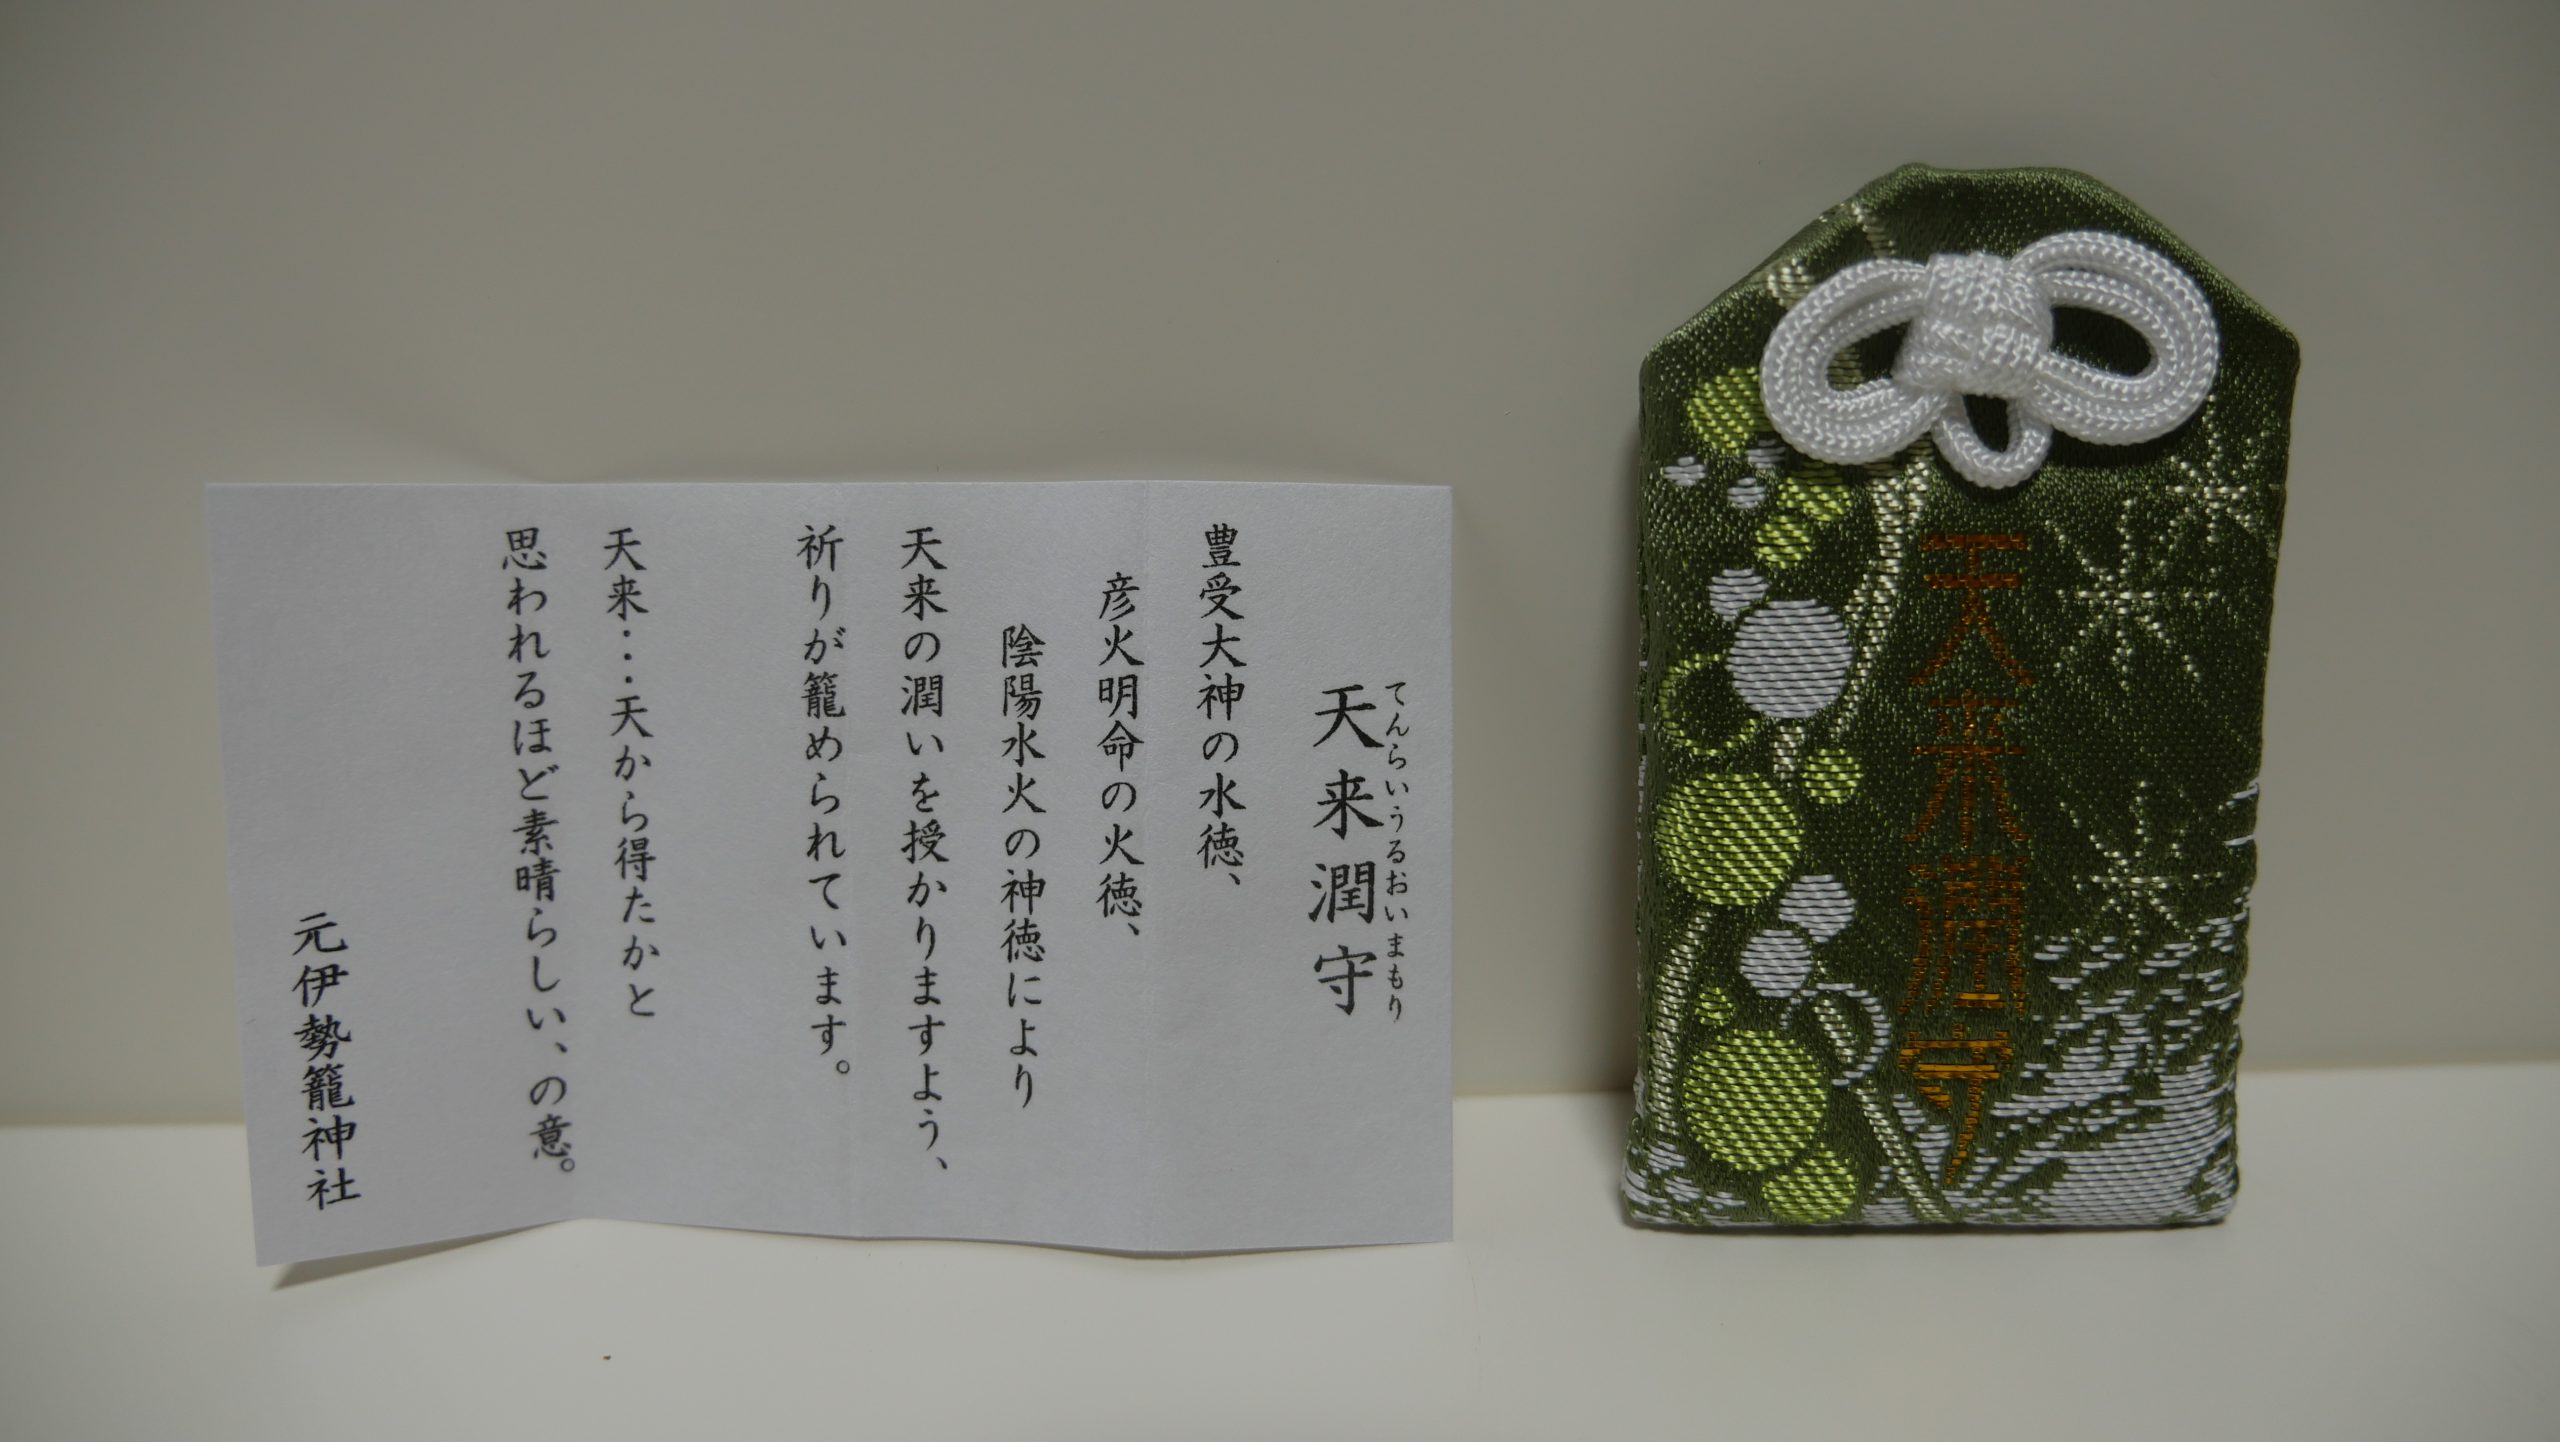 天来潤守
てんらいうるおいまもり
豊受大神の水徳、
彦火明命の火徳、
陰陽水火の神徳により
天来の潤いを授かりますよう、
祈りが籠められています。
天来・・・天から得たかと
思われるほど素晴らしい、の意。
元伊勢籠神社
天来潤守